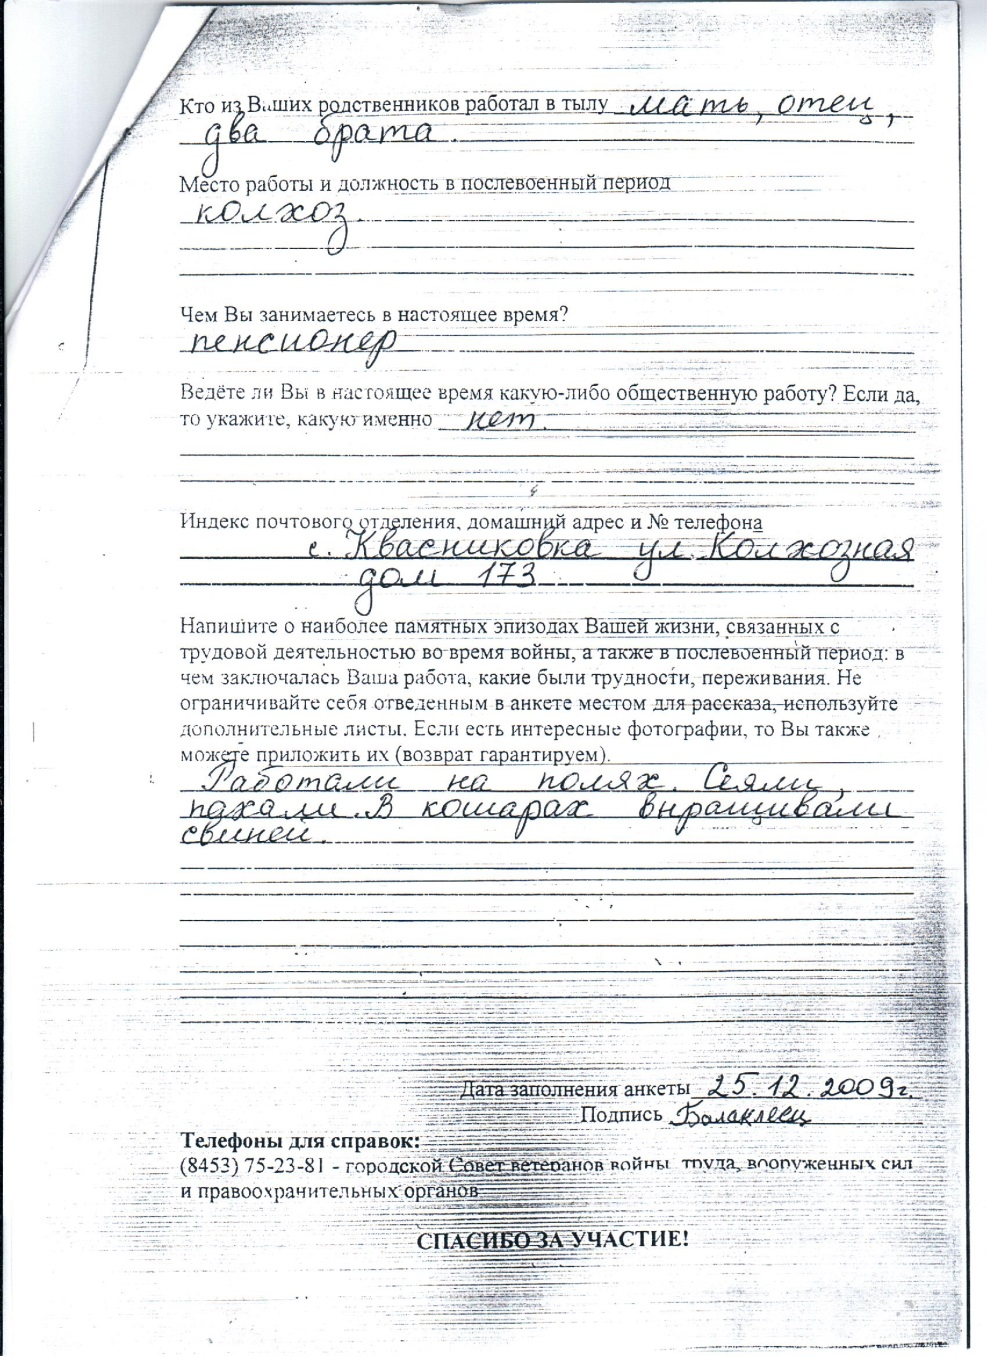 Кто из Ваших родственников работал в тылу мать, отец,
два брата.
Место работы и должность в послевоенный период
колхоз.
Чем Вы занимаетесь в настоящее время?
пенсионер
Ведёте ли Вы в настоящее время какую-либо общественную работу? Если да,
то укажите, какую именно нет.
Индекс почтового отделения, домашний адрес и № телефона
с. Квасниковка ул. Колхозная
дом 173
Напишите о наиболее памятных эпизодах Вашей жизни, связанных с
трудовой деятельностью во время войны, а также в послевоенный период: в
чем заключалась Ваша работа, какие были трудности, переживания. Не
ограничивайте себя отведенным в анкете местом для рассказа, используйте
дополнительные листы. Если есть интересные фотографии, то Вы также
можете приложить их (возврат гарантируем).
Работали на полях. Сеяли,
пахали. В кошарах выращивали
свиней.
Дата заполнения анкеты 25.12.2009г.
Подпись Балаклеец
Телефоны для справок:
(8453) 75-23-81 - городской Совет ветеранов войны, труда, вооруженных сил
и правоохранительных органов
СПАСИБО ЗА УЧАСТИЕ!